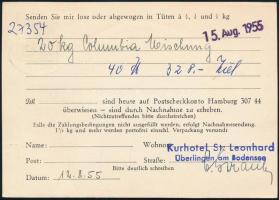 Senden Sie mir lose oder abgewogen in Tüten à ½, ¼ und ⅛ kg
27354
15. Aug. 1955
20 kg Columbia Mischung
40 % 32 8.- Ziel
DM sind heute auf Postscheckkonto Hamburg 307 44
überwiesen — sind durch Nachnahme zu erheben.
(Nichtzutreffendes bitte durchstreichen)
Falls die Zahlungsbedingungen nicht ausgefüllt werden, erfolgt Nachnahmesendung.
1½ kg und mehr werden portofrei einschl. Verpackung versandt
Name: Wohnort:
Kurhotel St. Leonhard
Post: Straße:
Überlingen am Bodensee
Bitte deutlich schreiben
Datum: 12.8.55